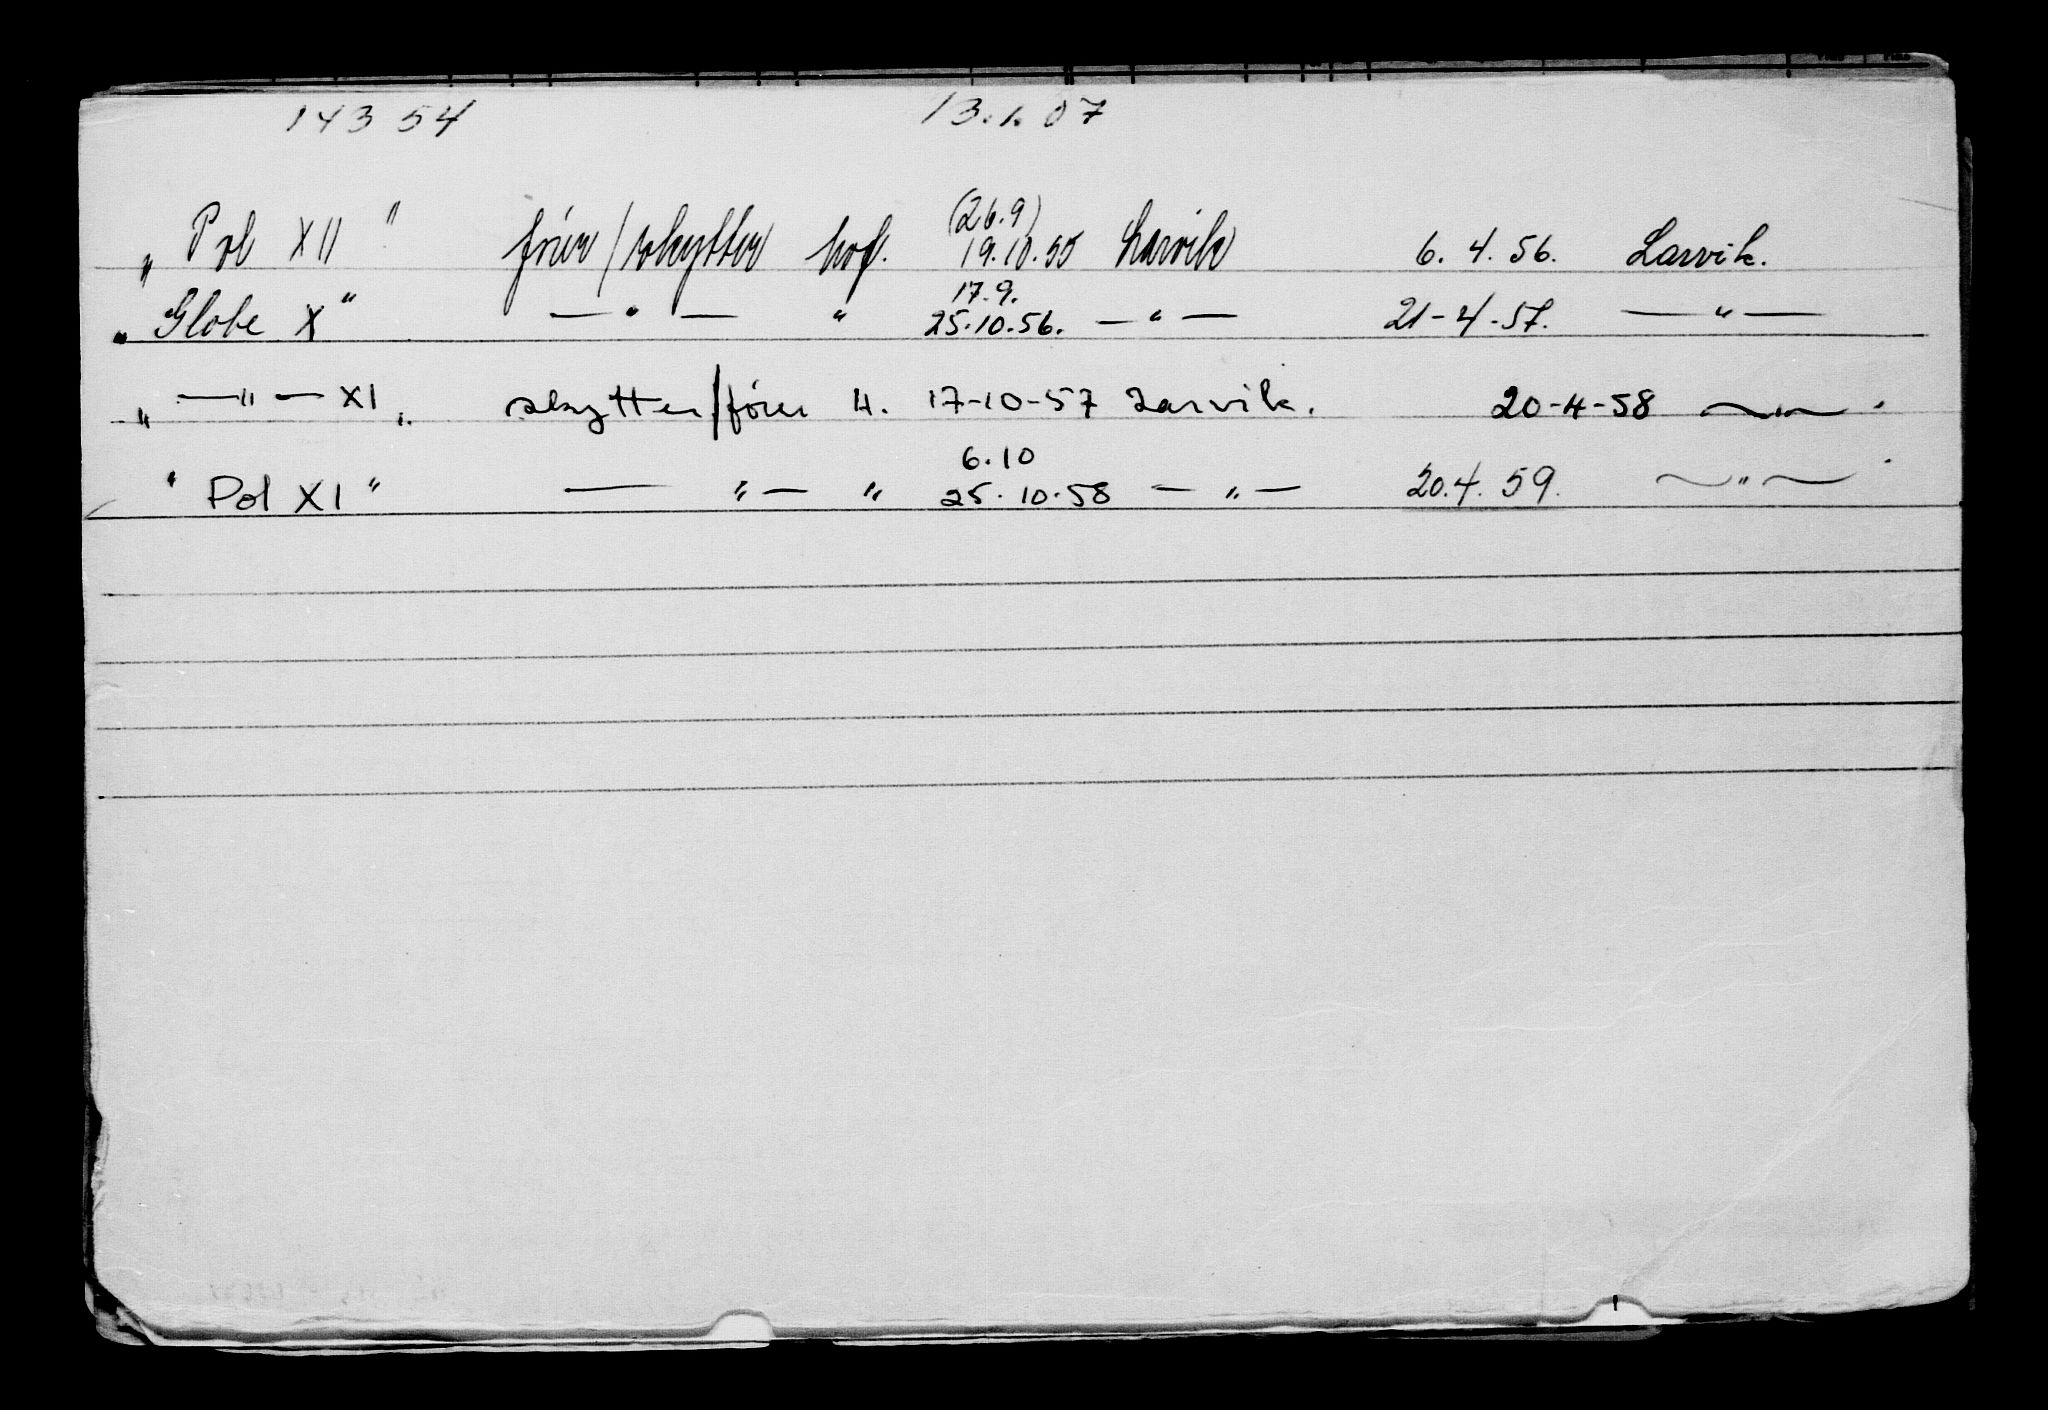 14354 13.1.07
„ Pol XII " fører/skytter hvf. (26.9) 19.10.55 Larvik 6.4.56. Larvik.
„ Globe X " — " — " 17.9. 25.10.56. — " — 21-4-57. — " —
„ — " — XI „ skytter/fører H. 17-10-57 Larvik. 20-4-58 — " — .
" Pol XI " — " — " 6.10 25.10.58 — " — 20.4.59. — " — .